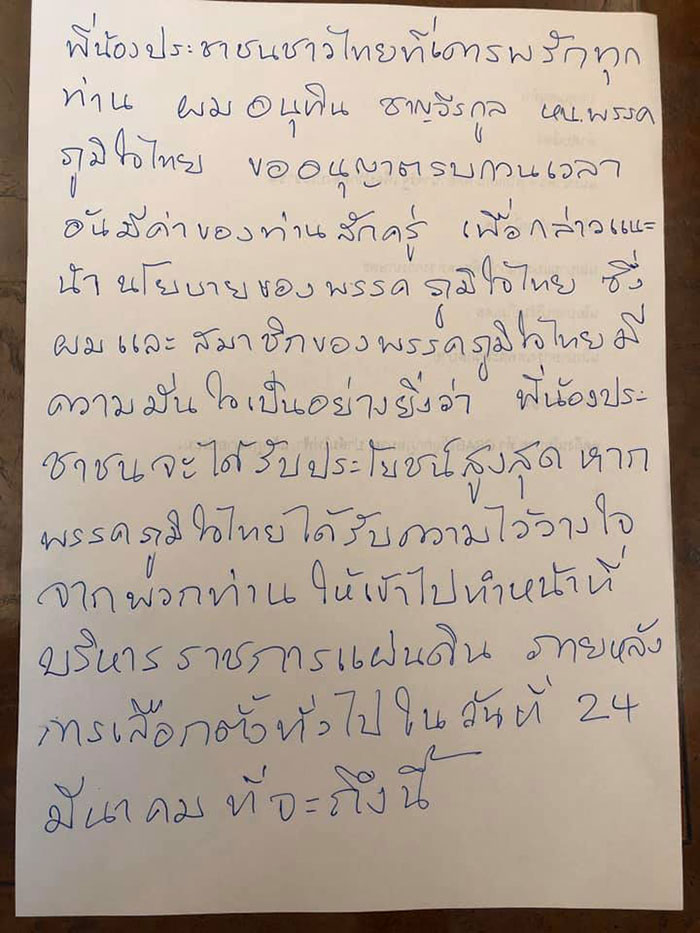 พี่น้องประชาชนชาวไทยที่เคารพรักทุก
ท่าน ผม อนุทิน ชาญวีรกูล หน.พรรค
ภูมิใจไทย ขออนุญาตรบกวนเวลา
อันมีค่าของท่านสักครู่ เพื่อกล่าวแนะ
นำนโยบายของพรรคภูมิใจไทย ซึ่ง
ผมและสมาชิกของพรรคภูมิใจไทยมี
ความมั่นใจเป็นอย่างยิ่งว่า พี่น้องประ
ชาชนจะได้รับประโยชน์สูงสุด หาก
พรรคภูมิใจไทยได้รับความไว้วางใจ
จากพวกท่าน ให้เข้าไปทำหน้าที่
บริหารราชการแผ่นดิน ภายหลัง
การเลือกตั้งทั่วไปในวันที่ 24
มีนาคม ที่จะถึงนี้